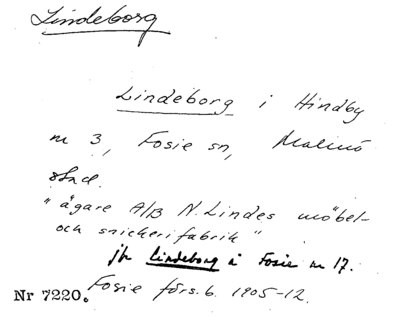 Lindeborg
Lindeborg i Hindby
nr 3, Fosie sn, Malmö
stad.
"ägare A/B N. Lindes möbel-
och snickerifabrik"
jfr Lindeborg å Fosie nr 17.
Nr 7220. Fosie förs.b. 1905-12.